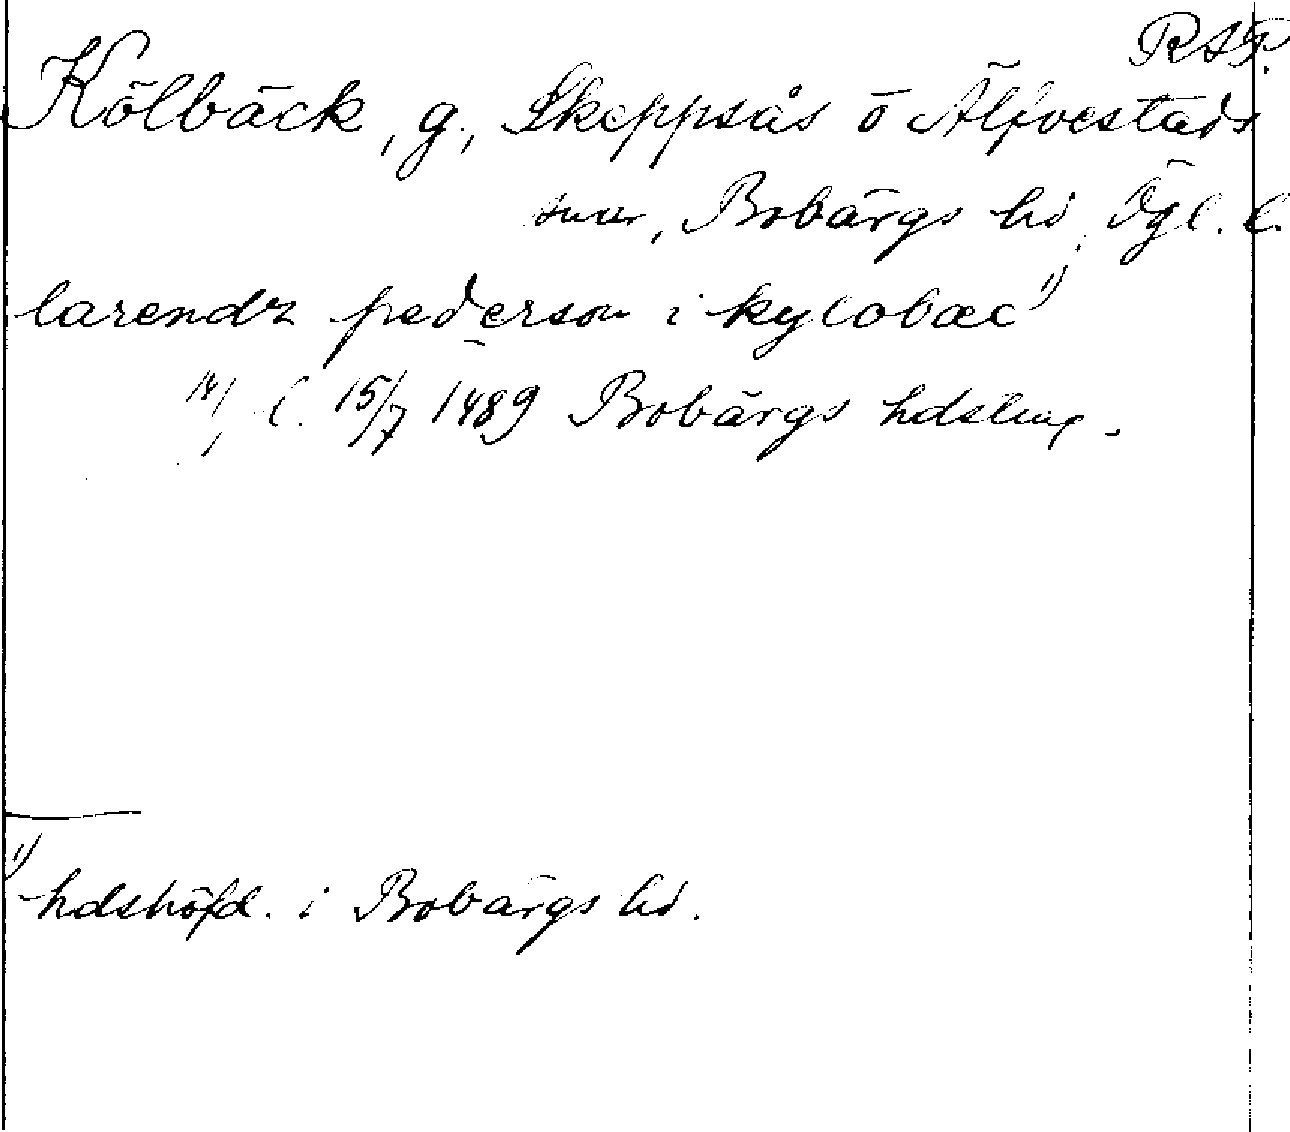 RAP.
Kölbäck, g., Skeppsås o Älfvestads
snar, Bobärgs hd, Ögl. l.
larendz pederson i kylobæc 1)
l. 15/7 1489 Bobärgs hdsting.
1) hdshöfd. i Bobärgs hd.